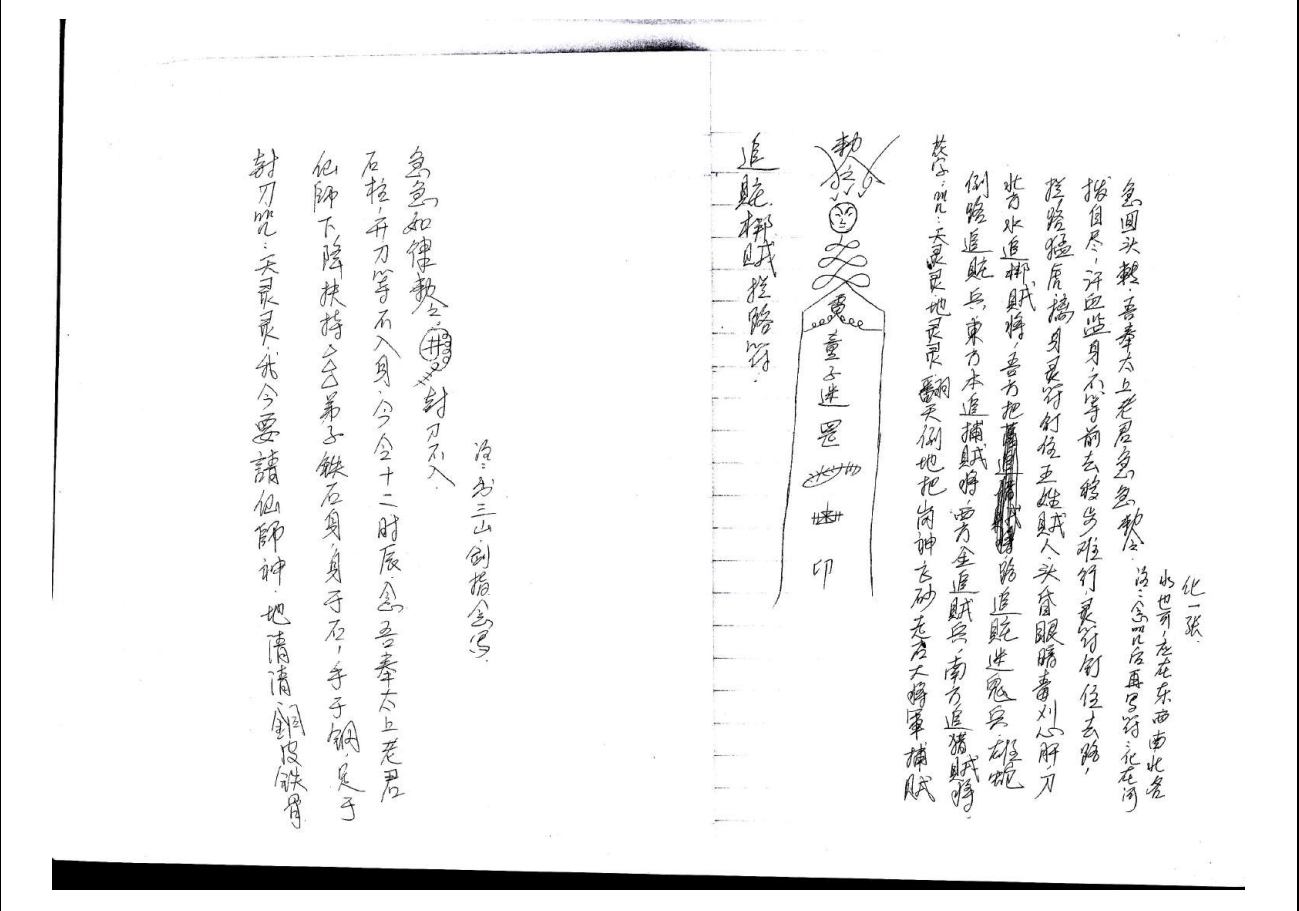 封刀咒:天灵灵我今要請仙師神.地清清.銅皮鉄骨
仙師下降扶持厶厶弟子鉄石身,身于石,手于鋼.足于
石柱,开刀等不入身.今令十二时辰.念吾奉太上老君
急急如律勅令.井 封刀不入.
注:书三山.剑指念写.
追賍梆賊拦路符.
勅令
童子迷罡 印
咒:天灵灵地灵灵翻天倒地把岗神飞砂走石大将軍捕賊
倒路追賍兵,東方木追捕賊将,西方金追賊兵,南方追猎賊将.
北方水追梆賊将,吾方把路追賍迷鬼兵.雄蛇
拦路猛虎擒身灵符钉住王姓賊人.头昏眼暗毒刈心肝.刀
拔自尽,汗血监身不等前去移步难行,灵符钉住去路,
急回头转.吾奉太上老君急急勅令.
注:念咒后再写符:化在河
水也可,应在东西南北各
化一张.